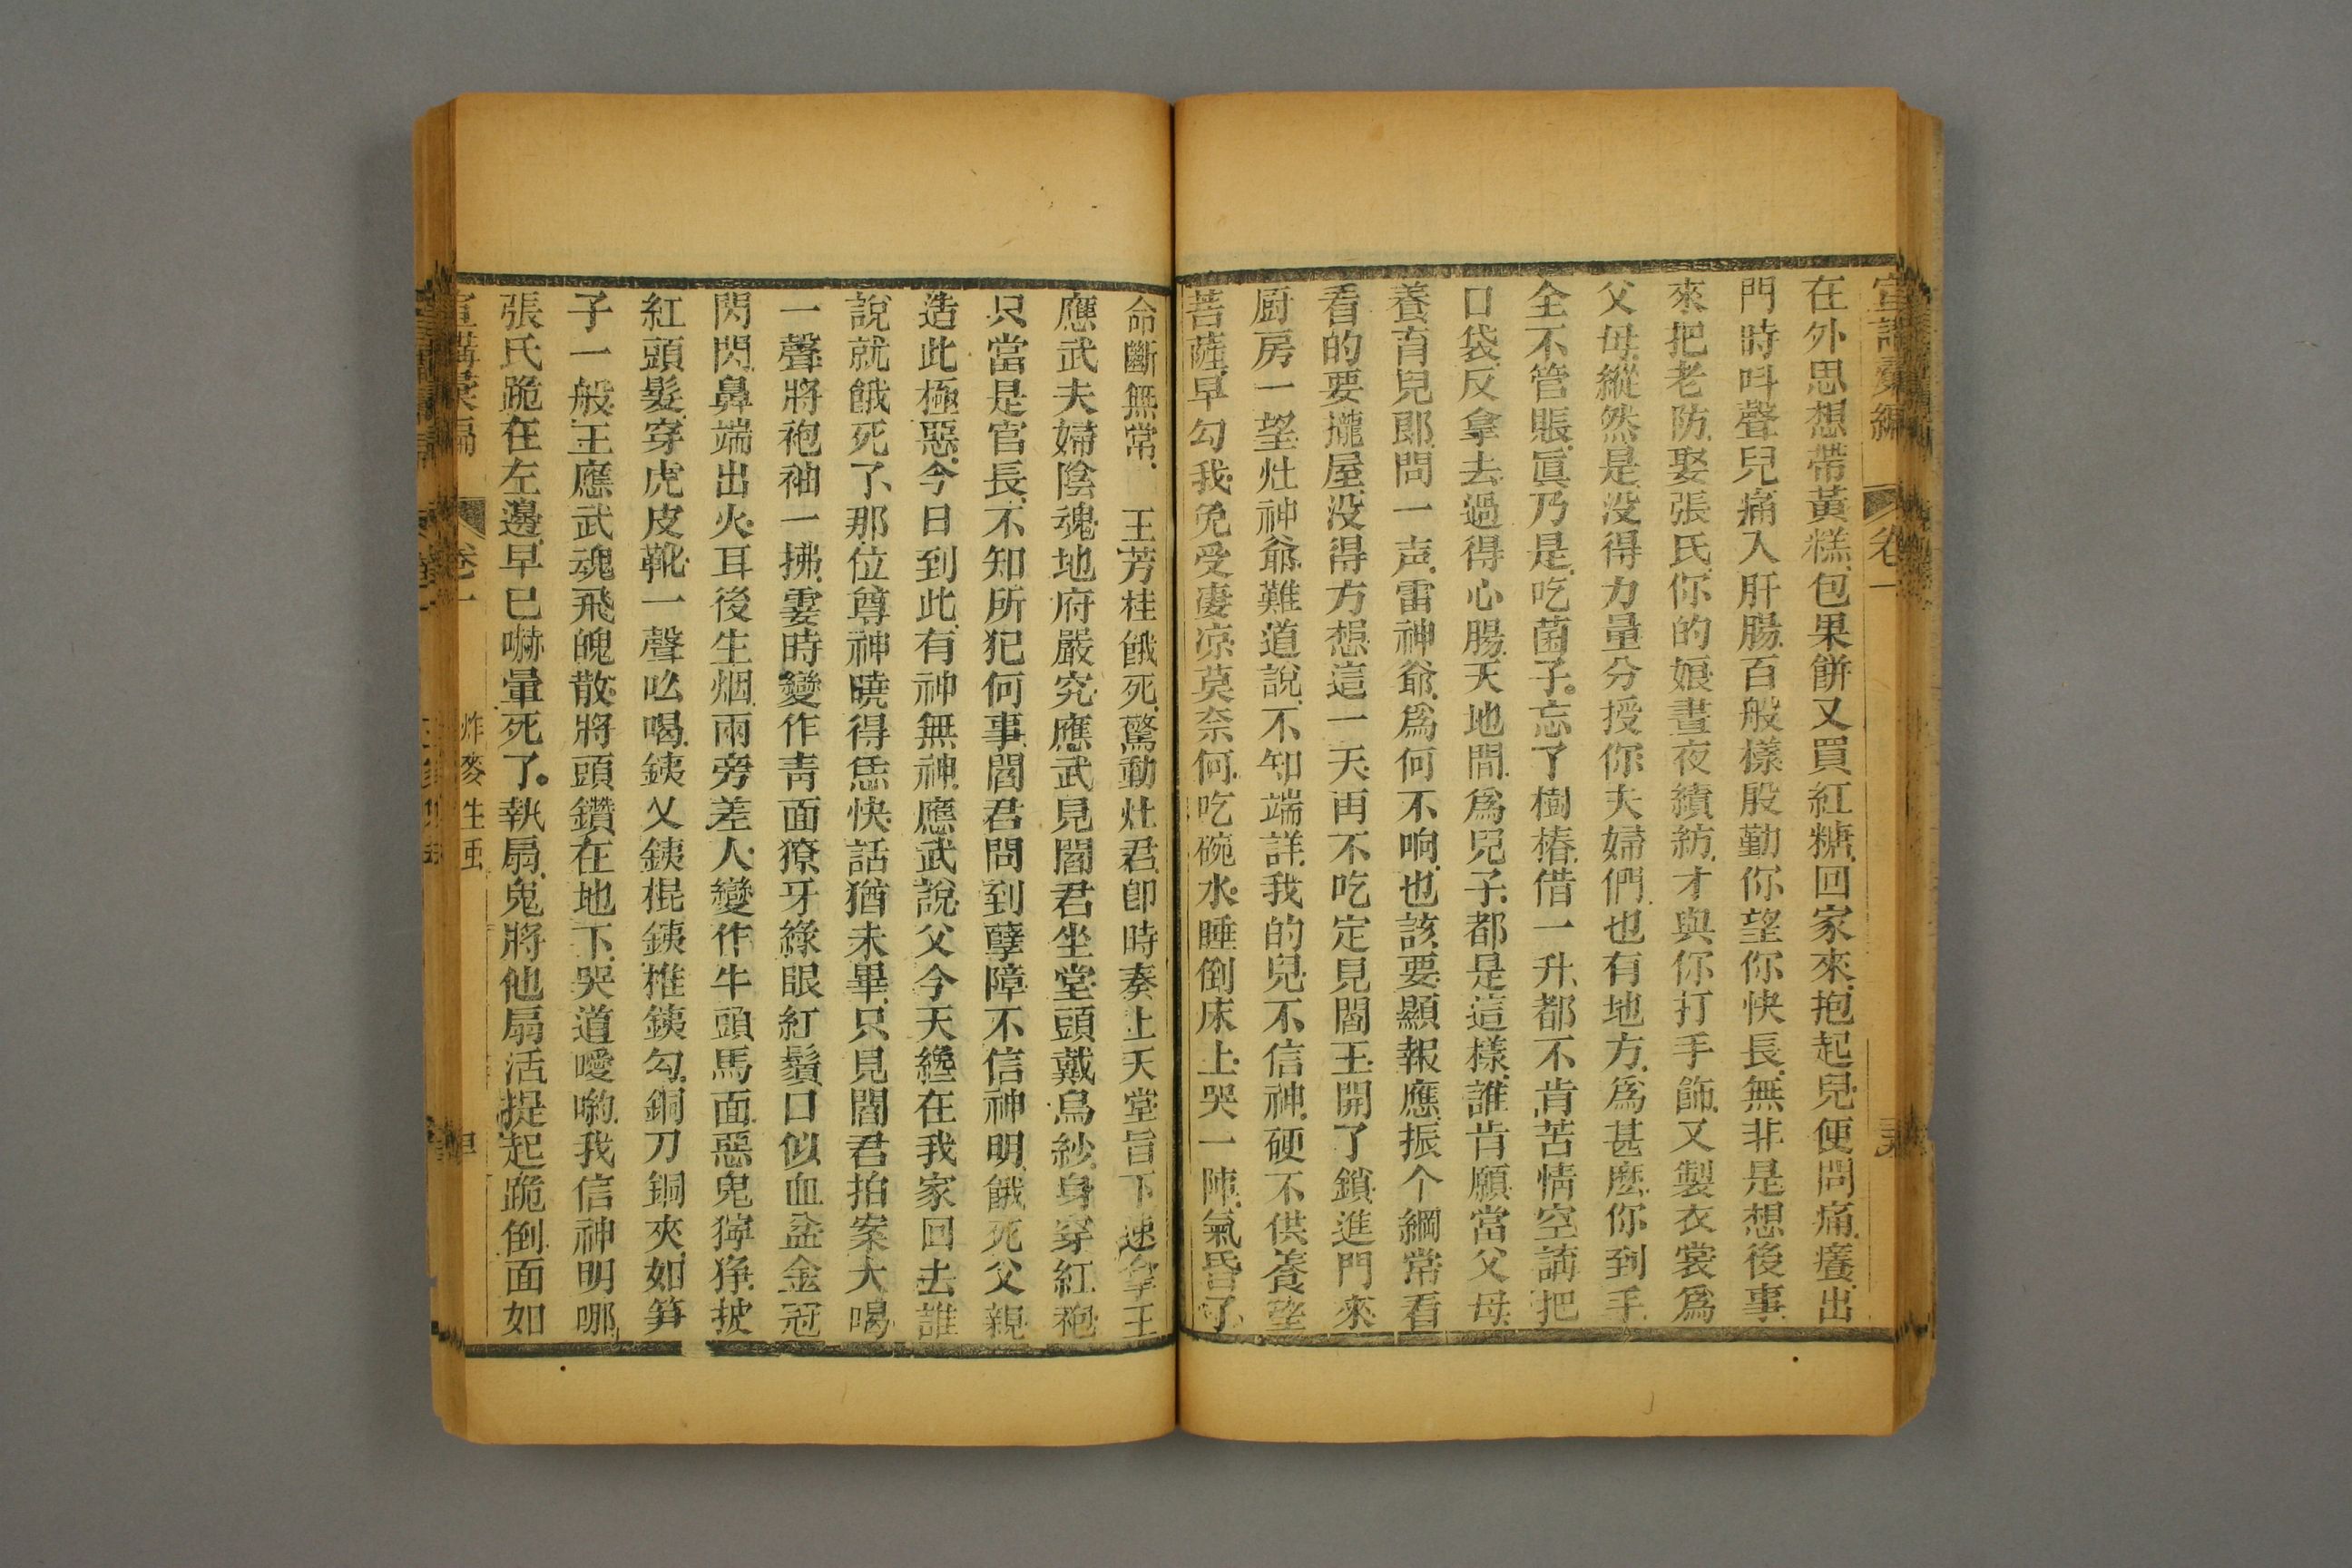 宣講彙編 卷一
在外思想帶黃糕包果餅又買紅糖回家來抱起兒便問痛癢出
門時呌聲兒痛入肝腸百般樣殷勤你望你快長無非是想後事
來把老防娶張氏你的娘晝夜績紡才與你打手飾又製衣裳爲
父母縱然是没得力量分授你夫婦們也有地方爲甚麽你到手
全不管賬眞乃是吃菌子忘了樹樁借一升都不肯苦情空講把
口袋反拿去過得心腸天地間爲兒子都是這樣誰肯願當父母
養育兒郎問一声雷神爺爲何不响也該要顯報應振个綱常看
看的要攏屋没得方想這一天再不吃定見閻王開了鎖進門來
厨房一望灶神爺難道說不知端詳我的兒不信神硬不供養望
菩薩早勾我免受凄凉莫奈何吃碗水睡倒床上哭一陣氣昏了
命斷無常 王芳桂餓死驚動灶君卽時奏上天堂旨下速拿王
應武夫婦陰魂地府嚴究應武見閻君坐堂頭戴烏紗身穿紅袍
只當是官長不知所犯何事閻君問到孽障不信神明餓死父親
造此極惡今日到此有神無神應武說父今天纔在我家回去誰
說就餓死了那位尊神曉得恁快話猶未畢只見閻君拍案大喝
一聲將袍袖一拂霎時變作青面獠牙綠眼紅鬚口似血盆金冠
閃閃鼻端出火耳後生烟兩旁差人變作牛頭馬面惡鬼獰猙披
紅頭髮穿虎皮靴一聲吆喝銕乂銕棍銕椎銕勾銅刀銅夾如笋
子一般王應武魂飛魄散將頭鑽在地下哭道噯喲我信神明哪
張氏跪在左邊早已嚇暈死了執扇鬼將他扇活提起跪倒面如
宣講彙編 卷一 炸麥生蚕